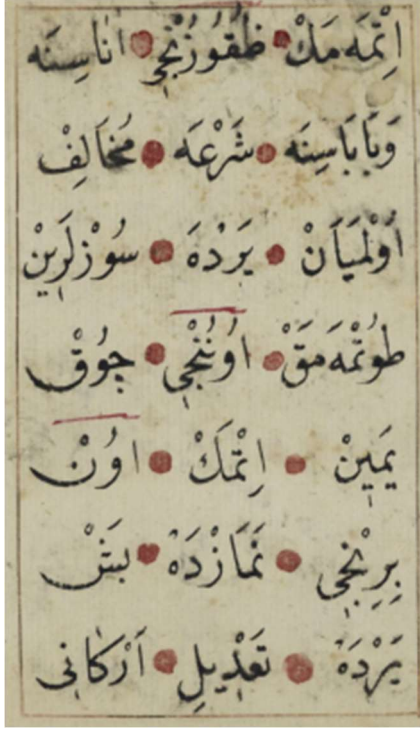 اِتْمَه مَكْ طُقُوزُنْجِی اٰنَاسِنَه
وَبَابَاسِنَه شَرْعَه مُخَالِفْ
اُولْمَیَانْ یَرْدَهْ سُوزْلَرِینْ
طُوتْمَه مَقْ اُونُنْجِی چُوقْ
یَمِینْ اِتْمَكْ اوُنْ
بِرِنْجِی نَمَازْدَهْ بَشْ
یَرْدَهْ تَعْدِیلِ اَرْكَانِی